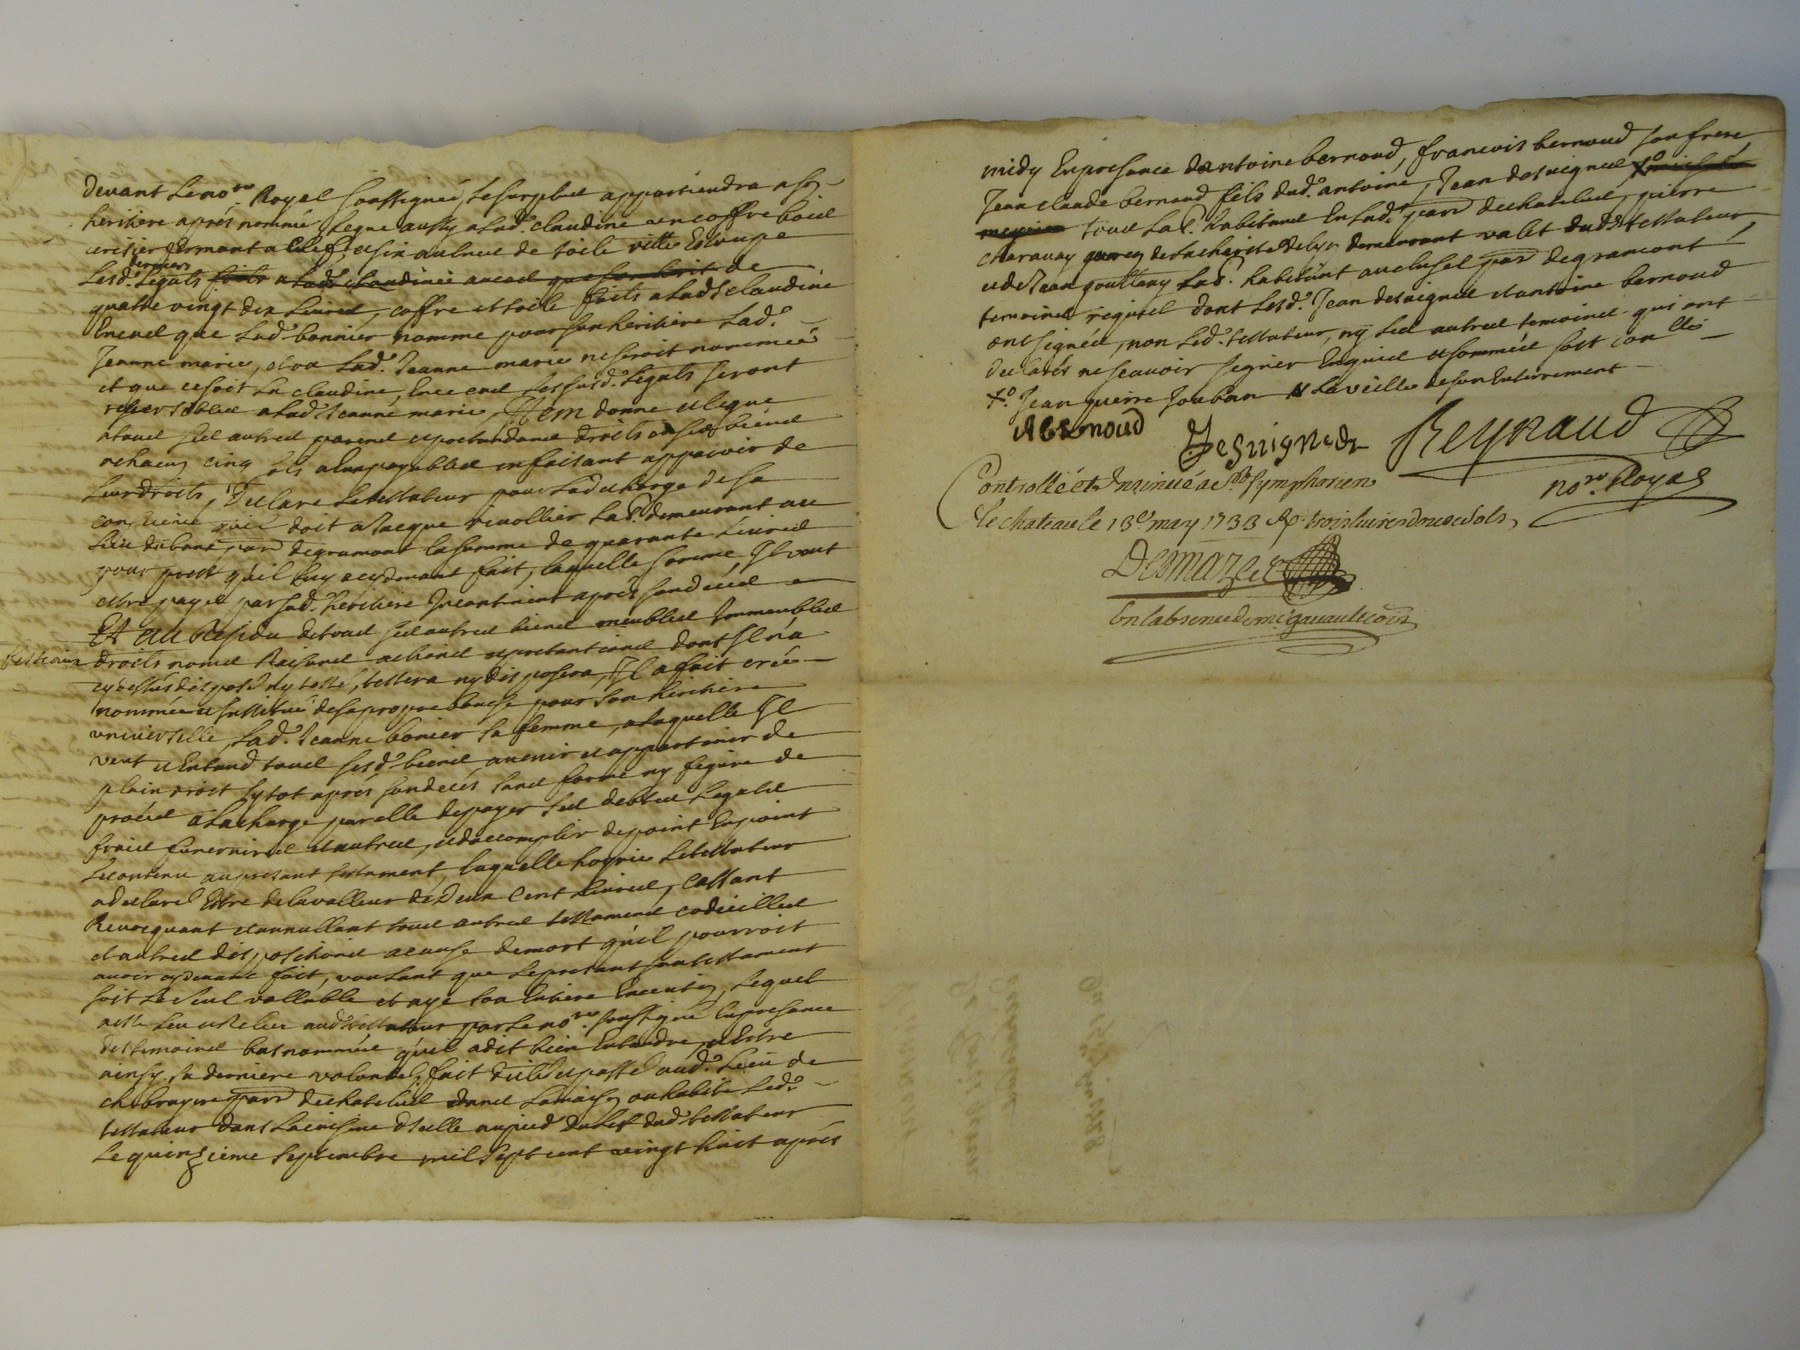 devant Le no.re Royal soussigné, Le surplus appartiendra a son
heritiere aprés nommée, Legue aussy a Lad.e claudine un coffre bois
cerisier fermant a Clef, et six aulnes de toile
Lesd. derniers Legats a Lad.e claudine de
quatre vingt dix Livres, coffre et toille faits a Lad.e claudine
En cas que Lad.e bonnier nomme pour son heritiere Lad.e
Jeanne marie, et ou Lad.e Jeanne marie ne seroit nommée
et que ce soit La claudine, En ce cas Les susd. Legats seront
reversibles a Lad.e Jeanne marie, Item donne et legue
a tous ses autres parens et pretendants droits en ses biens
a chacun cinq sols a eux payables en faisant apparoir de
Leurs droits, Declare Le testateur pour La decharge de sa
conscience doit a Jacque rivollier Lad. demeurant au
Lieu du banc parr. de gramont La somme de quarante Livres
pour prest qu'il Luy a cy devant fait, laquelle somme, Il veut
estre payée par sad. heritiere Incontinent aprés son decés
Et au Residu de tous ses autres biens meubles Immeubles
droits noms Raisons actions et pretentions dont Il n'a
cy dessus disposé ny testé, testera ny disposera, Il a fait créé
nommée et Instituée de sa propre bouche pour son heritiere
universelle, Lad.e Jeanne bonier sa femme, a Laquelle Il
veut et Entend tous sesd. biens avenir et appartenir de
plain droit sytot aprés son decés sans forme ny figure de
procés a La charge par elle de payer ses debtes Legats
frais funeraires et autres, et d'accomplir de point En point
Le contenu au present testament, Laquelle hoyrie Le testateur
a declaré Estre de La valleur de Deux Cent Livres, Cassant
Revocquant et annullant tous autres testaments codicilles
et autres dispositions a cause de mort qu'il pourroit
avoir cydevant fait, voulant que Le present son testament
soit Le seul vallable et aye son Entiere Execution, Lequel
a esté Leu et Relu aud. testateur par Le no.re soussigné En presence
des temoins bas nommés qu'il a dit bien Entendre, et Estre
ainsy sa derniere volonté, fait et passé aud. Lieu de
parr. de chatelus dans La maison ou habite Led.
testateur dans La cuisine d'icelle au pied du Lit dud. testateur
Le quinzieme septembre mil sept cent vingt huit aprés
midy En presence d'antoine bernoud, francois bernoud son frere
Jean claude bernoud fils dud. antoine, Jean desvignes
tous Lab. habitants En Lad. parr. de chatelus, pierre
charavay demeurant valet dud. testateur
et de Jean Lab. habitant au clusel parr. de gramont
temoins requis dont Lesd. Jean desvignes et antoine bernoud
ont signés, non Led. testateur, ny Les autres temoins qui ont
declarés ne scavoir signer Enquis et sommés
x.o Jean pierre Jouban La vielle de son Enterrement
A Bernoud Desvignes Reynaud
no.re Royal
Controllé et Insinué a St Symphorien
Le chateau le 13e may 1733 Rp. trois livres douze sols
Desmazes
En l'absence de